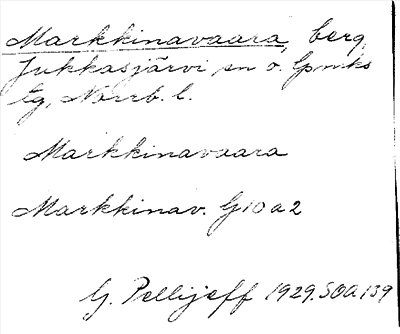 Markkinavaara, berg,
Jukkasjärvi sn o. lpmks
tg, Norrb. l.
Markkinavaara
Markkinav. G10a2
G. Pellijeff 1929. SOA 139